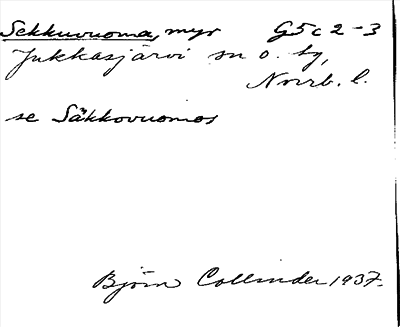 Sekkuvuoma, myr G5c2-3
Jukkasjärvi sn o. by,
Norrb. l.
se Säkkovuomos
Björn Collinder 1937.